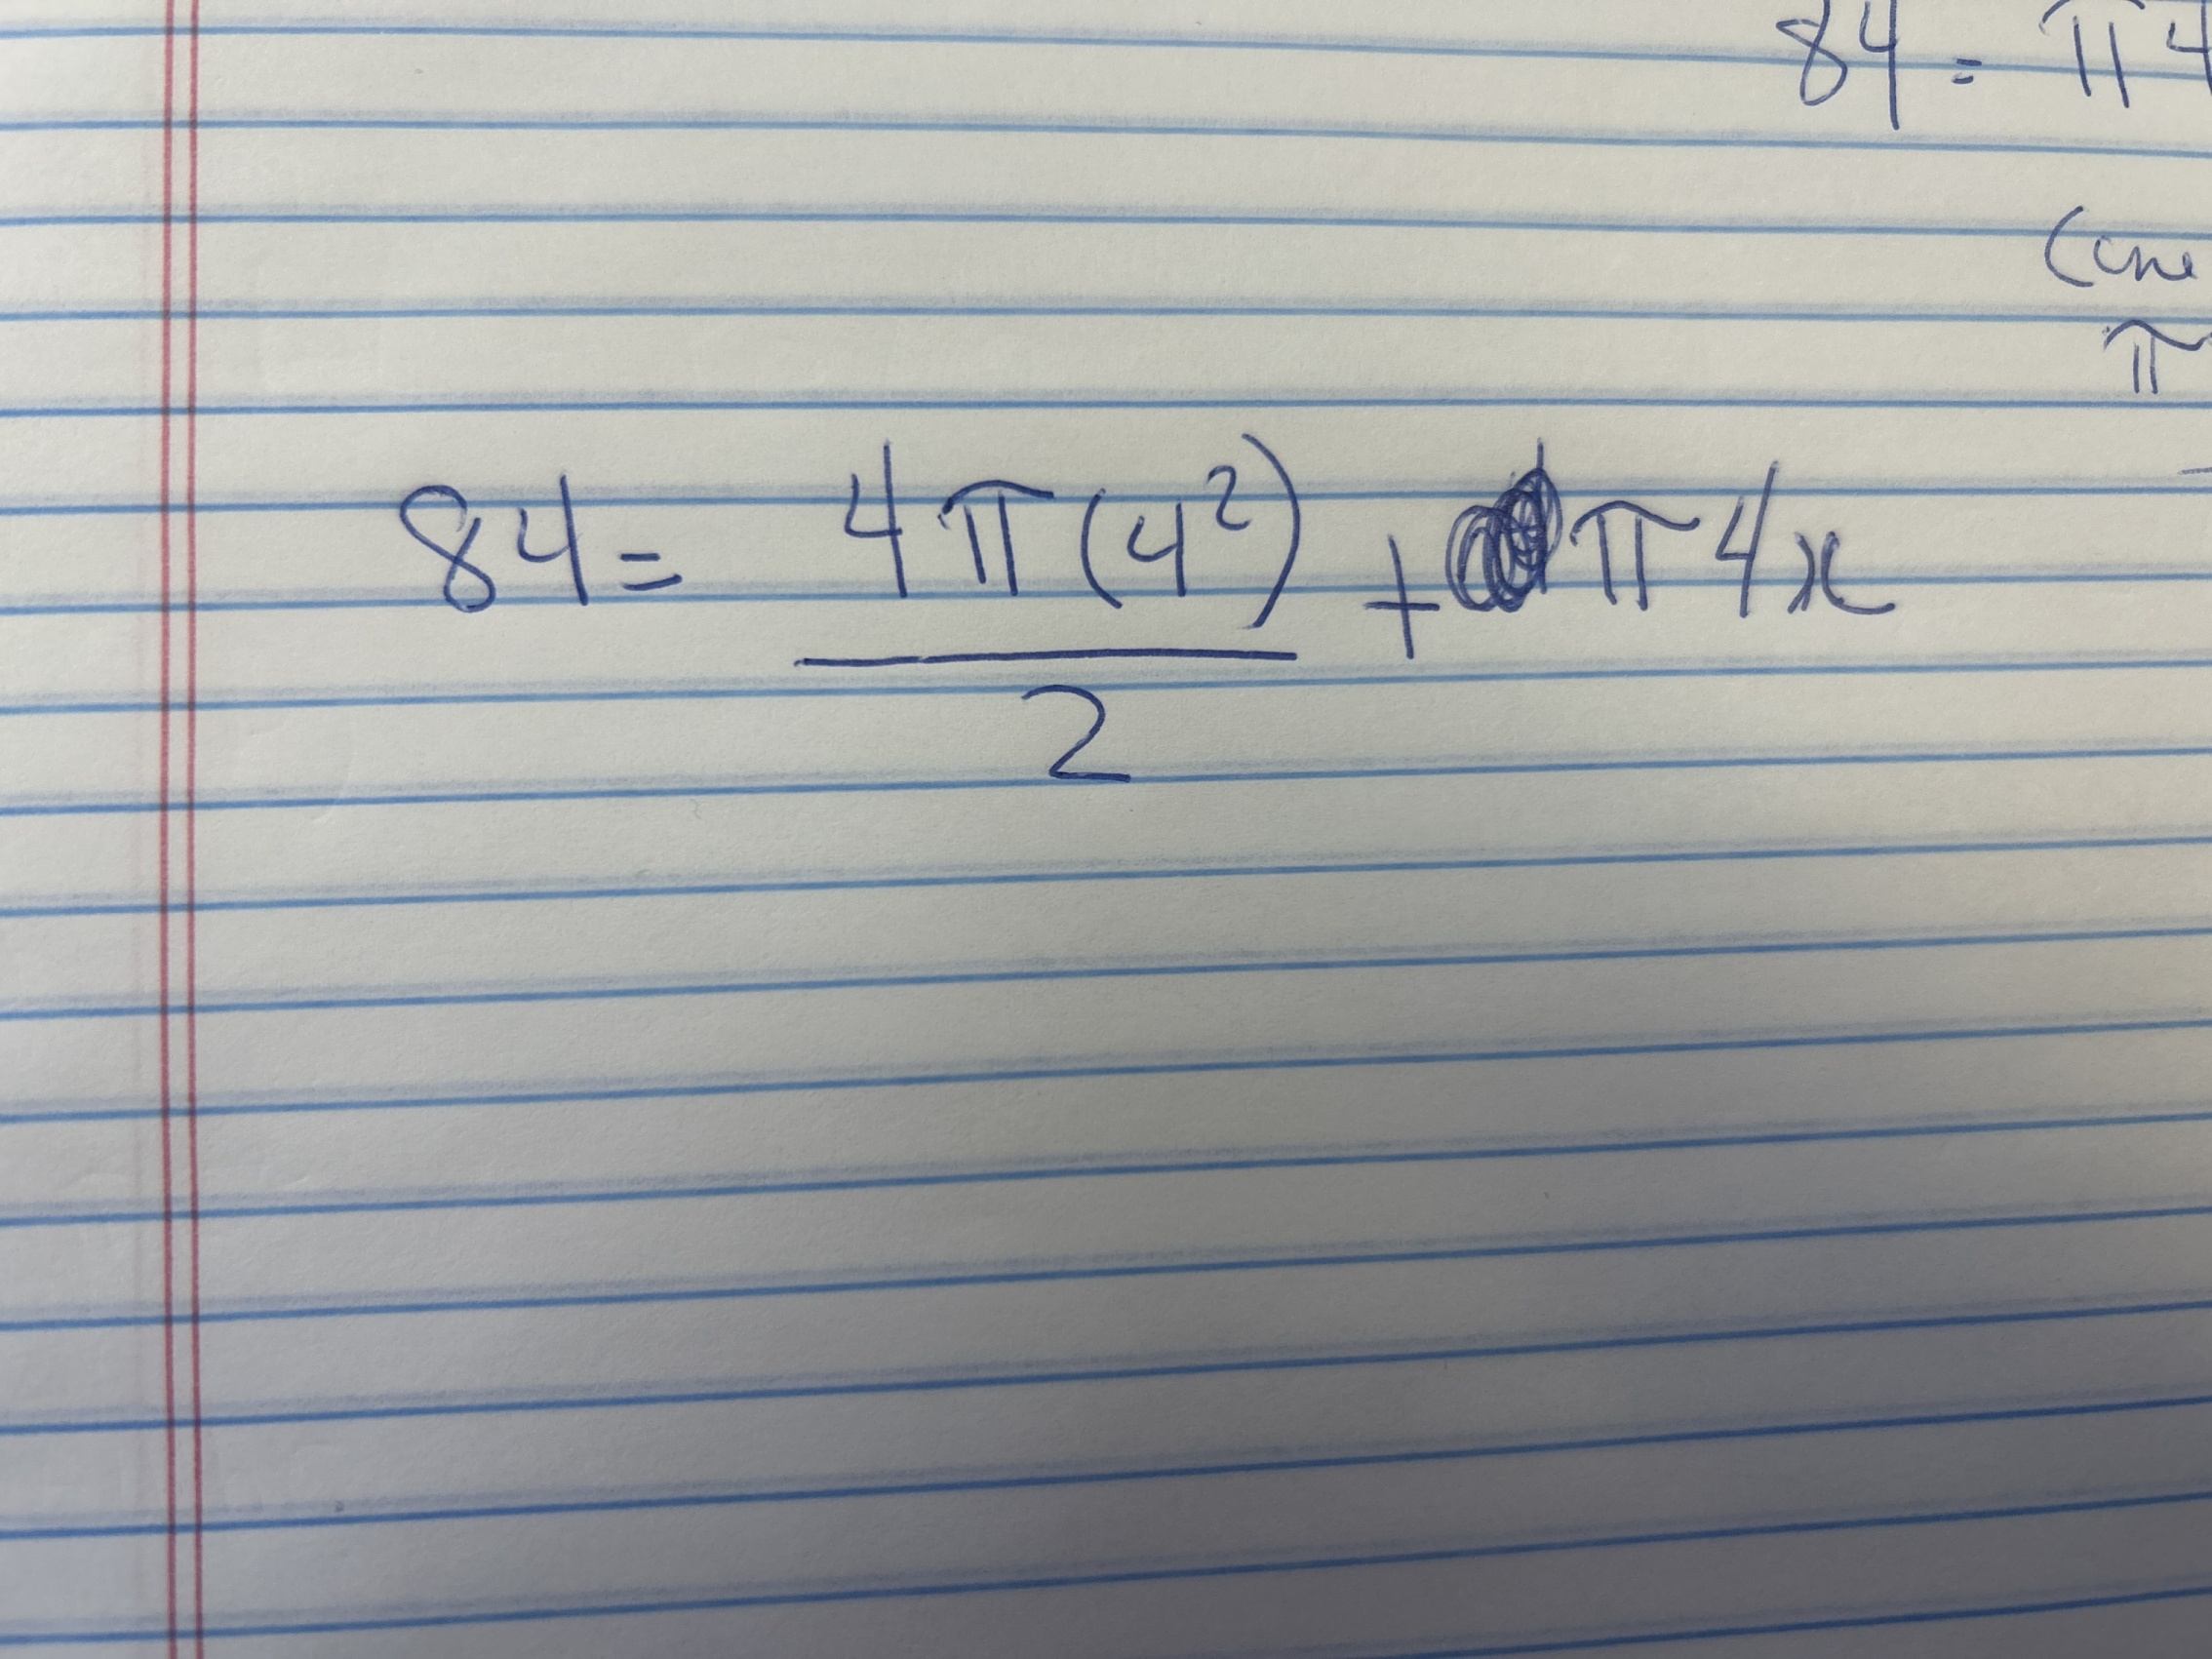 84 = π 4
(one
π
84 = 4π(4²) + π4x
2